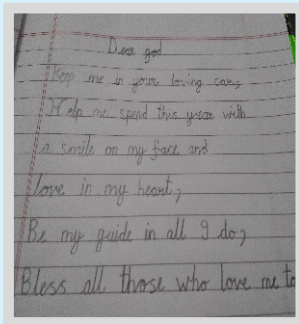 Dear god
Keep me in your loving care,
Help me spend this year with
a smile on my face and
love in my heart,
Be my guide in all I do,
Bless all those who love me to